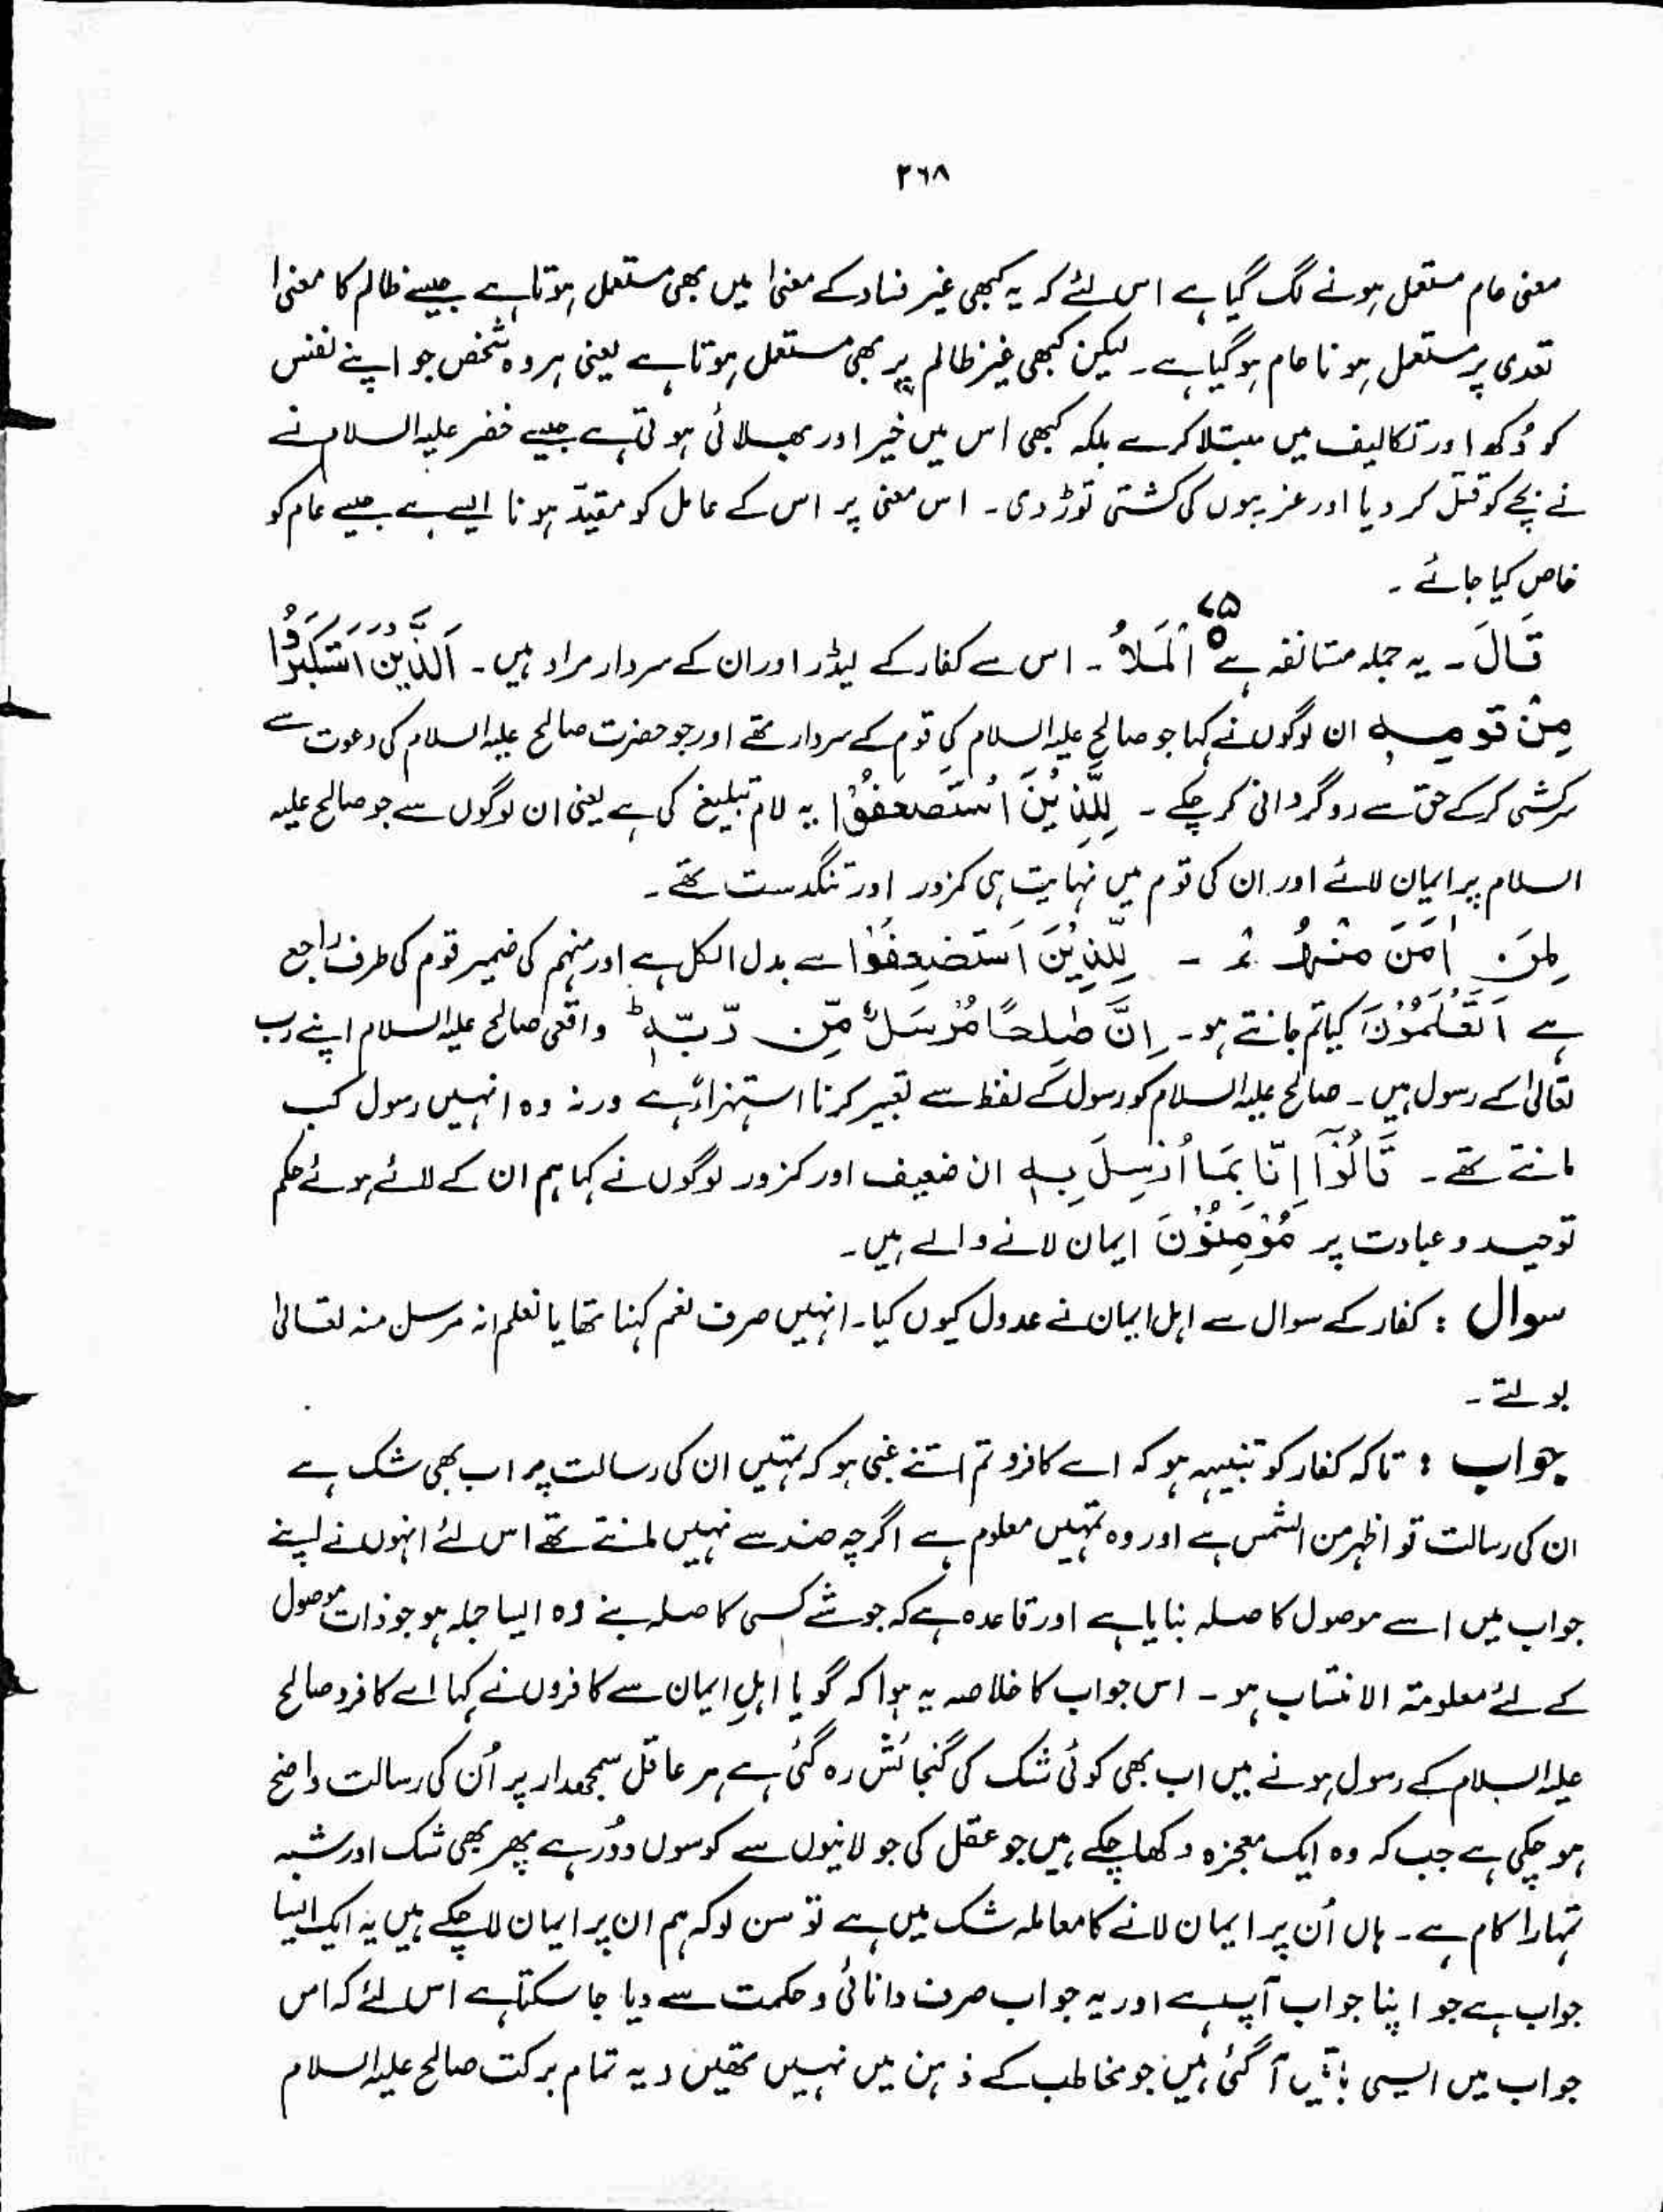 ۲۶۸
معنی عام مستعمل ہونے لگ گیا ہے اس لئے کہ یہ کبھی غیر فساد کے معنیٰ میں بھی مستعمل ہوتا ہے جیسے ظالم کا معنیٰ
تعدی پر مستعمل ہونا عام ہو گیا ہے ۔ لیکن کبھی غیر ظالم پر بھی مستعمل ہوتا ہے یعنی ہر وہ شخص جو اپنے نفس
کو دُکھ اور تکالیف میں مبتلا کرے بلکہ کبھی اس میں خیر اور بھلائی ہوتی ہے جیسے خضر علیہ السلام نے
نے بچے کو قتل کر دیا اور غریبوں کی کشتی توڑ دی ۔ اس معنی پر اس کے عامل کو مقیّد ہونا ایسے ہے جیسے عام کو
خاص کیا جائے ۔
۷۵
قَالَ ۔ یہ جملہ مستانفہ ہے الْمَلَاُ ۔ اس سے کفار کے لیڈر اور ان کے سردار مراد ہیں ۔ الَّذِیْنَ اسْتَكْبَرُوْا
مِنْ قَوْمِهٖ ان لوگوں نے کہا جو صالح علیہ السلام کی قوم کے سردار تھے اور جو حضرت صالح علیہ السلام کی دعوت سے
سرکشی کر کے حق سے روگردانی کر چکے ۔ لِلَّذِیْنَ اسْتُضْعِفُوْا یہ لام تبلیغ کی ہے یعنی ان لوگوں سے جو صالح علیہ
السلام پر ایمان لائے اور ان کی قوم میں نہایت ہی کمزور اور تنگدست تھے ۔
لِمَنْ اٰمَنَ مِنْهُمْ ۔ لِلَّذِیْنَ اسْتُضْعِفُوْا سے بدل الکل ہے اور منہم کی ضمیر قوم کی طرف راجع
ہے اَتَعْلَمُوْنَ کیا تم جانتے ہو ۔ اِنَّ صٰلِحًا مُّرْسَلٌ مِّنْ رَّبِّهٖ ؕ واقعی صالح علیہ السلام اپنے رب
تعالیٰ کے رسول ہیں ۔ صالح علیہ السلام کو رسول کے لفظ سے تعبیر کرنا استہزاءً ہے ورنہ وہ انہیں رسول کب
مانتے تھے ۔ قَالُوْۤا اِنَّا بِمَاۤ اُرْسِلَ بِهٖ ان ضعیف اور کمزور لوگوں نے کہا ہم ان کے لائے ہوئے حکم
توحید و عبادت پر مُؤْمِنُوْنَ ایمان لانے والے ہیں ۔
سوال : کفار کے سوال سے اہل ایمان نے عدول کیوں کیا ۔ انہیں صرف نعم کہنا تھا یا نعلم انہ مرسل منہ تعالیٰ
بولتے ۔
جواب : تاکہ کفار کو تنبیہہ ہو کہ اے کافرو تم اتنے غبی ہو کہ تمہیں ان کی رسالت پر اب بھی شک ہے
ان کی رسالت تو اظہر من الشمس ہے اور وہ تمہیں معلوم ہے اگرچہ ضد سے نہیں مانتے تھے اس لئے انہوں نے اپنے
جواب میں اسے موصول کا صلہ بنایا ہے اور قاعدہ ہے کہ جو شے کسی کا صلہ بنے وہ ایسا جملہ ہو جو ذات موصول
کے لئے معلومۃ الانتساب ہو ۔ اس جواب کا خلاصہ یہ ہوا کہ گویا اہلِ ایمان سے کافروں نے کہا اے کافرو صالح
علیہ السلام کے رسول ہونے میں اب بھی کوئی شک کی گنجائش رہ گئی ہے ہر عاقل سمجھدار پر اُن کی رسالت واضح
ہو چکی ہے جب کہ وہ ایک معجزہ دکھا چکے ہیں جو عقل کی جولانیوں سے کوسوں دُور ہے پھر بھی شک اور شبہ
تمہارا کام ہے ۔ ہاں اُن پر ایمان لانے کا معاملہ شک میں ہے تو سن لو کہ ہم ان پر ایمان لا چکے ہیں یہ ایک ایسا
جواب ہے جو اپنا جواب آپ ہے اور یہ جواب صرف دانائی و حکمت سے دیا جا سکتا ہے اس لئے کہ اس
جواب میں ایسی باتیں آ گئی ہیں جو مخاطب کے ذہن میں نہیں تھیں دیہ تمام برکت صالح علیہ السلام